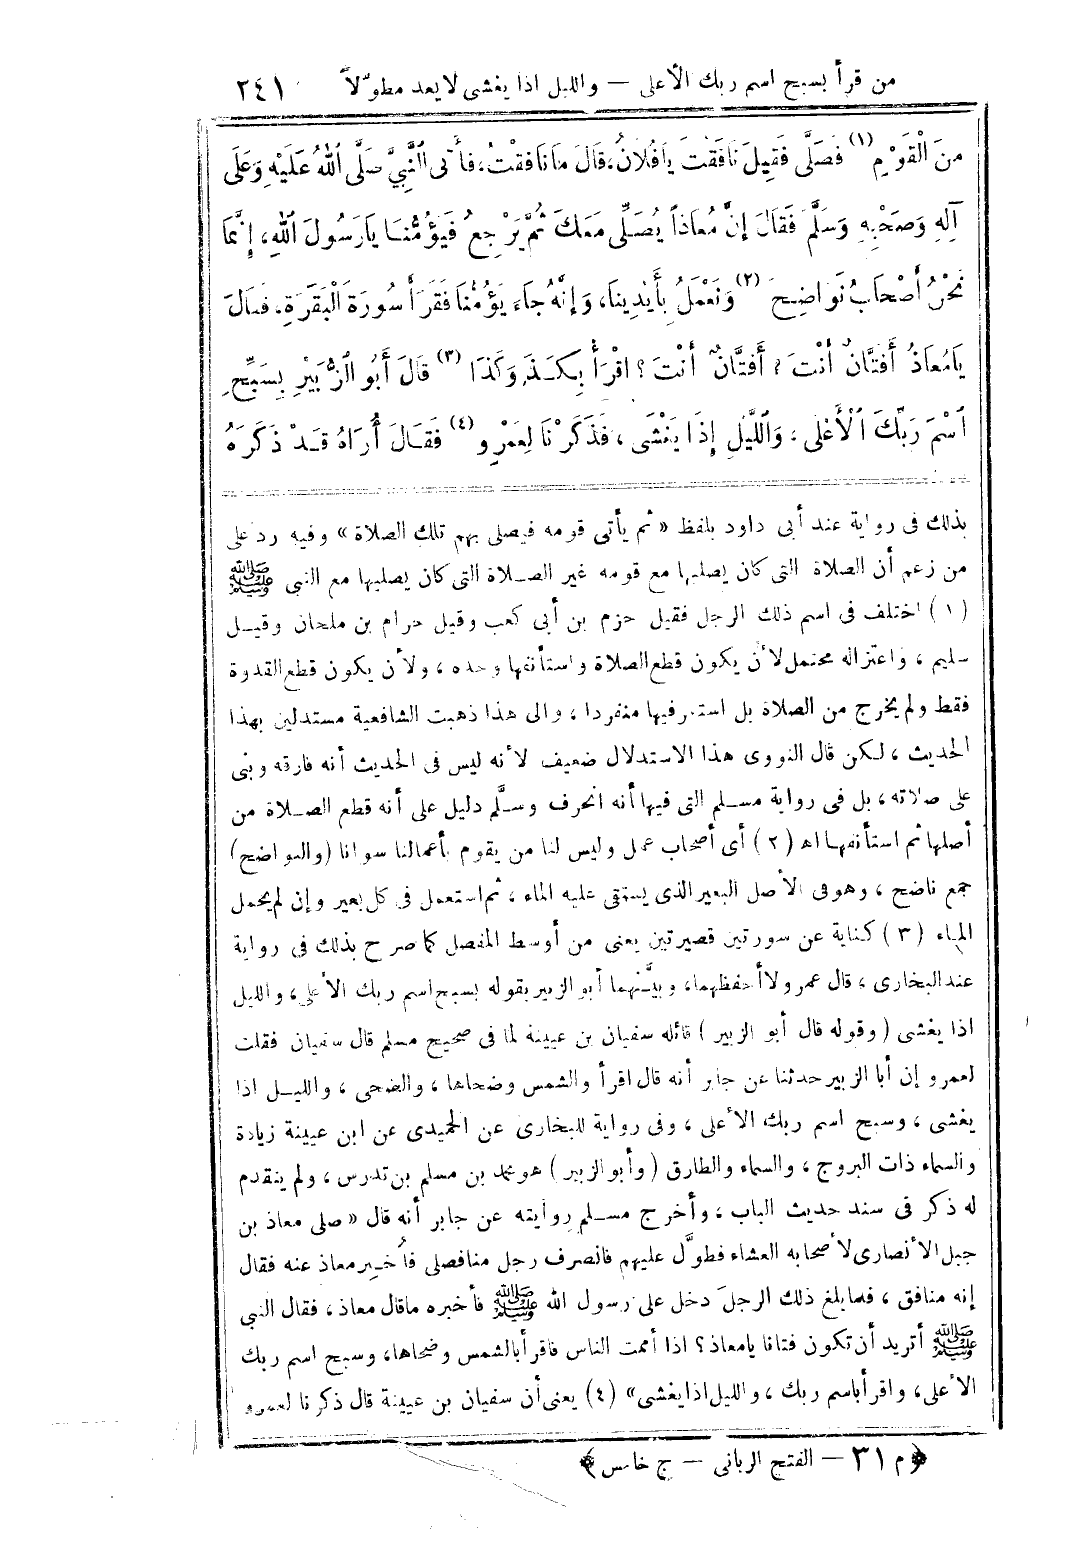 من قرأ بسبح اسم ربك الأعلى — والليل اذا يغشى لا يعد مطوّلاً ٢٤١
مِنَ الْقَوْمِ (١) فَصَلَّى فَقِيلَ نَافَقْتَ يَا فُلَانُ، قَالَ مَا نَافَقْتُ، فَأَتَى النَّبِيَّ صَلَّى اللهُ عَلَيْهِ وَعَلَى
آلِهِ وَصَحْبِهِ وَسَلَّمَ فَقَالَ إِنَّ مُعَاذاً يُصَلِّى مَعَكَ ثُمَّ يَرْجِعُ فَيَؤُمُّنَا يَا رَسُولَ اللهِ، إِنَّمَا
نَحْنُ أَصْحَابُ نَوَاضِحَ (٢) وَنَعْمَلُ بِأَيْدِينَا، وَإِنَّهُ جَاءَ يَؤُمُّنَا فَقَرَأَ سُورَةَ الْبَقَرَةِ، فَقَالَ
يَا مُعَاذُ أَفَتَّانٌ أَنْتَ ؟ أَفَتَّانٌ أَنْتَ ؟ اقْرَأْ بِكَذَا وَكَذَا (٣) قَالَ أَبُو الزُّبَيْرِ بِسَبِّحِ
اسْمَ رَبِّكَ الْأَعْلَى ، وَاللَّيْلِ إِذَا يَغْشَى ، فَذَكَرْنَا لِعَمْرٍو (٤) فَقَالَ أُرَاهُ قَدْ ذَكَرَهُ
بذلك فى رواية عند أبى داود بلفظ « ثم يأتى قومه فيصلى بهم تلك الصلاة » وفيه رد على
من زعم أن الصلاة التى كان يصليها مع قومه غير الصلاة التى كان يصليها مع النبى ﷺ
(١) اختلف فى اسم ذلك الرجل فقيل حزم بن أبى كعب وقيل حرام بن ملحان وقيل
سليم ، واعتزاله محتمل لأن يكون قطع الصلاة واستأنفها وحده ، ولأن يكون قطع القدوة
فقط ولم يخرج من الصلاة بل استوفيها منفردا ، والى هذا ذهبت الشافعية مستدلين بهذا
الحديث ، لكن قال النووى هذا الاستدلال ضعيف لأنه ليس فى الحديث أنه فارقه وبنى
على صلاته ، بل فى رواية مسلم التى فيها أنه انحرف وسلَّم دليل على أنه قطع الصلاة من
أصلها ثم استأنفها اهـ (٢) أى أصحاب عمل وليس لنا من يقوم بأعمالنا سوانا (والنواضح)
جمع ناضح ، وهو فى الأصل البعير الذى يستقى عليه الماء ، ثم استعمل فى كل بعير وإن لم يحمل
الماء (٣) كناية عن سورتين قصيرتين يعنى من أوسط المفصل كما صرح بذلك فى رواية
عند البخارى ، قال عمرو لا أحفظهما، وبيَّنهما أبو الزبير بقوله بسبح اسم ربك الأعلى، والليل
اذا يغشى (وقوله قال أبو الزبير) قائله سفيان بن عيينة لما فى صحيح مسلم قال سفيان فقلت
لعمرو إن أبا الزبير حدثنا عن جابر أنه قال اقرأ والشمس وضحاها ، والضحى ، والليل اذا
يغشى ، وسبح اسم ربك الأعلى ، وفى رواية للبخارى عن الحميدى عن ابن عيينة زيادة
والسماء ذات البروج ، والسماء والطارق (وأبو الزبير) هو محمد بن مسلم بن تدرس ، ولم يتقدم
له ذكر فى سند حديث الباب ، وأخرج مسلم روايته عن جابر أنه قال « صلى معاذ بن
جبل الأنصارى لأصحابه العشاء فطوَّل عليهم فانصرف رجل منا فصلى فأُخبر معاذ عنه فقال
إنه منافق ، فلما بلغ ذلك الرجلَ دخل على رسول الله ﷺ فأخبره ما قال معاذ ، فقال النبى
ﷺ أتريد أن تكون فتانا يا معاذ؟ اذا أممت الناس فاقرأ بالشمس وضحاها، وسبح اسم ربك
الأعلى، واقرأ باسم ربك ، والليل اذا يغشى» (٤) يعنى أن سفيان بن عيينة قال ذكرنا لعمرو
﴿ م ٣١ — الفتح الربانى — ج خامس ﴾